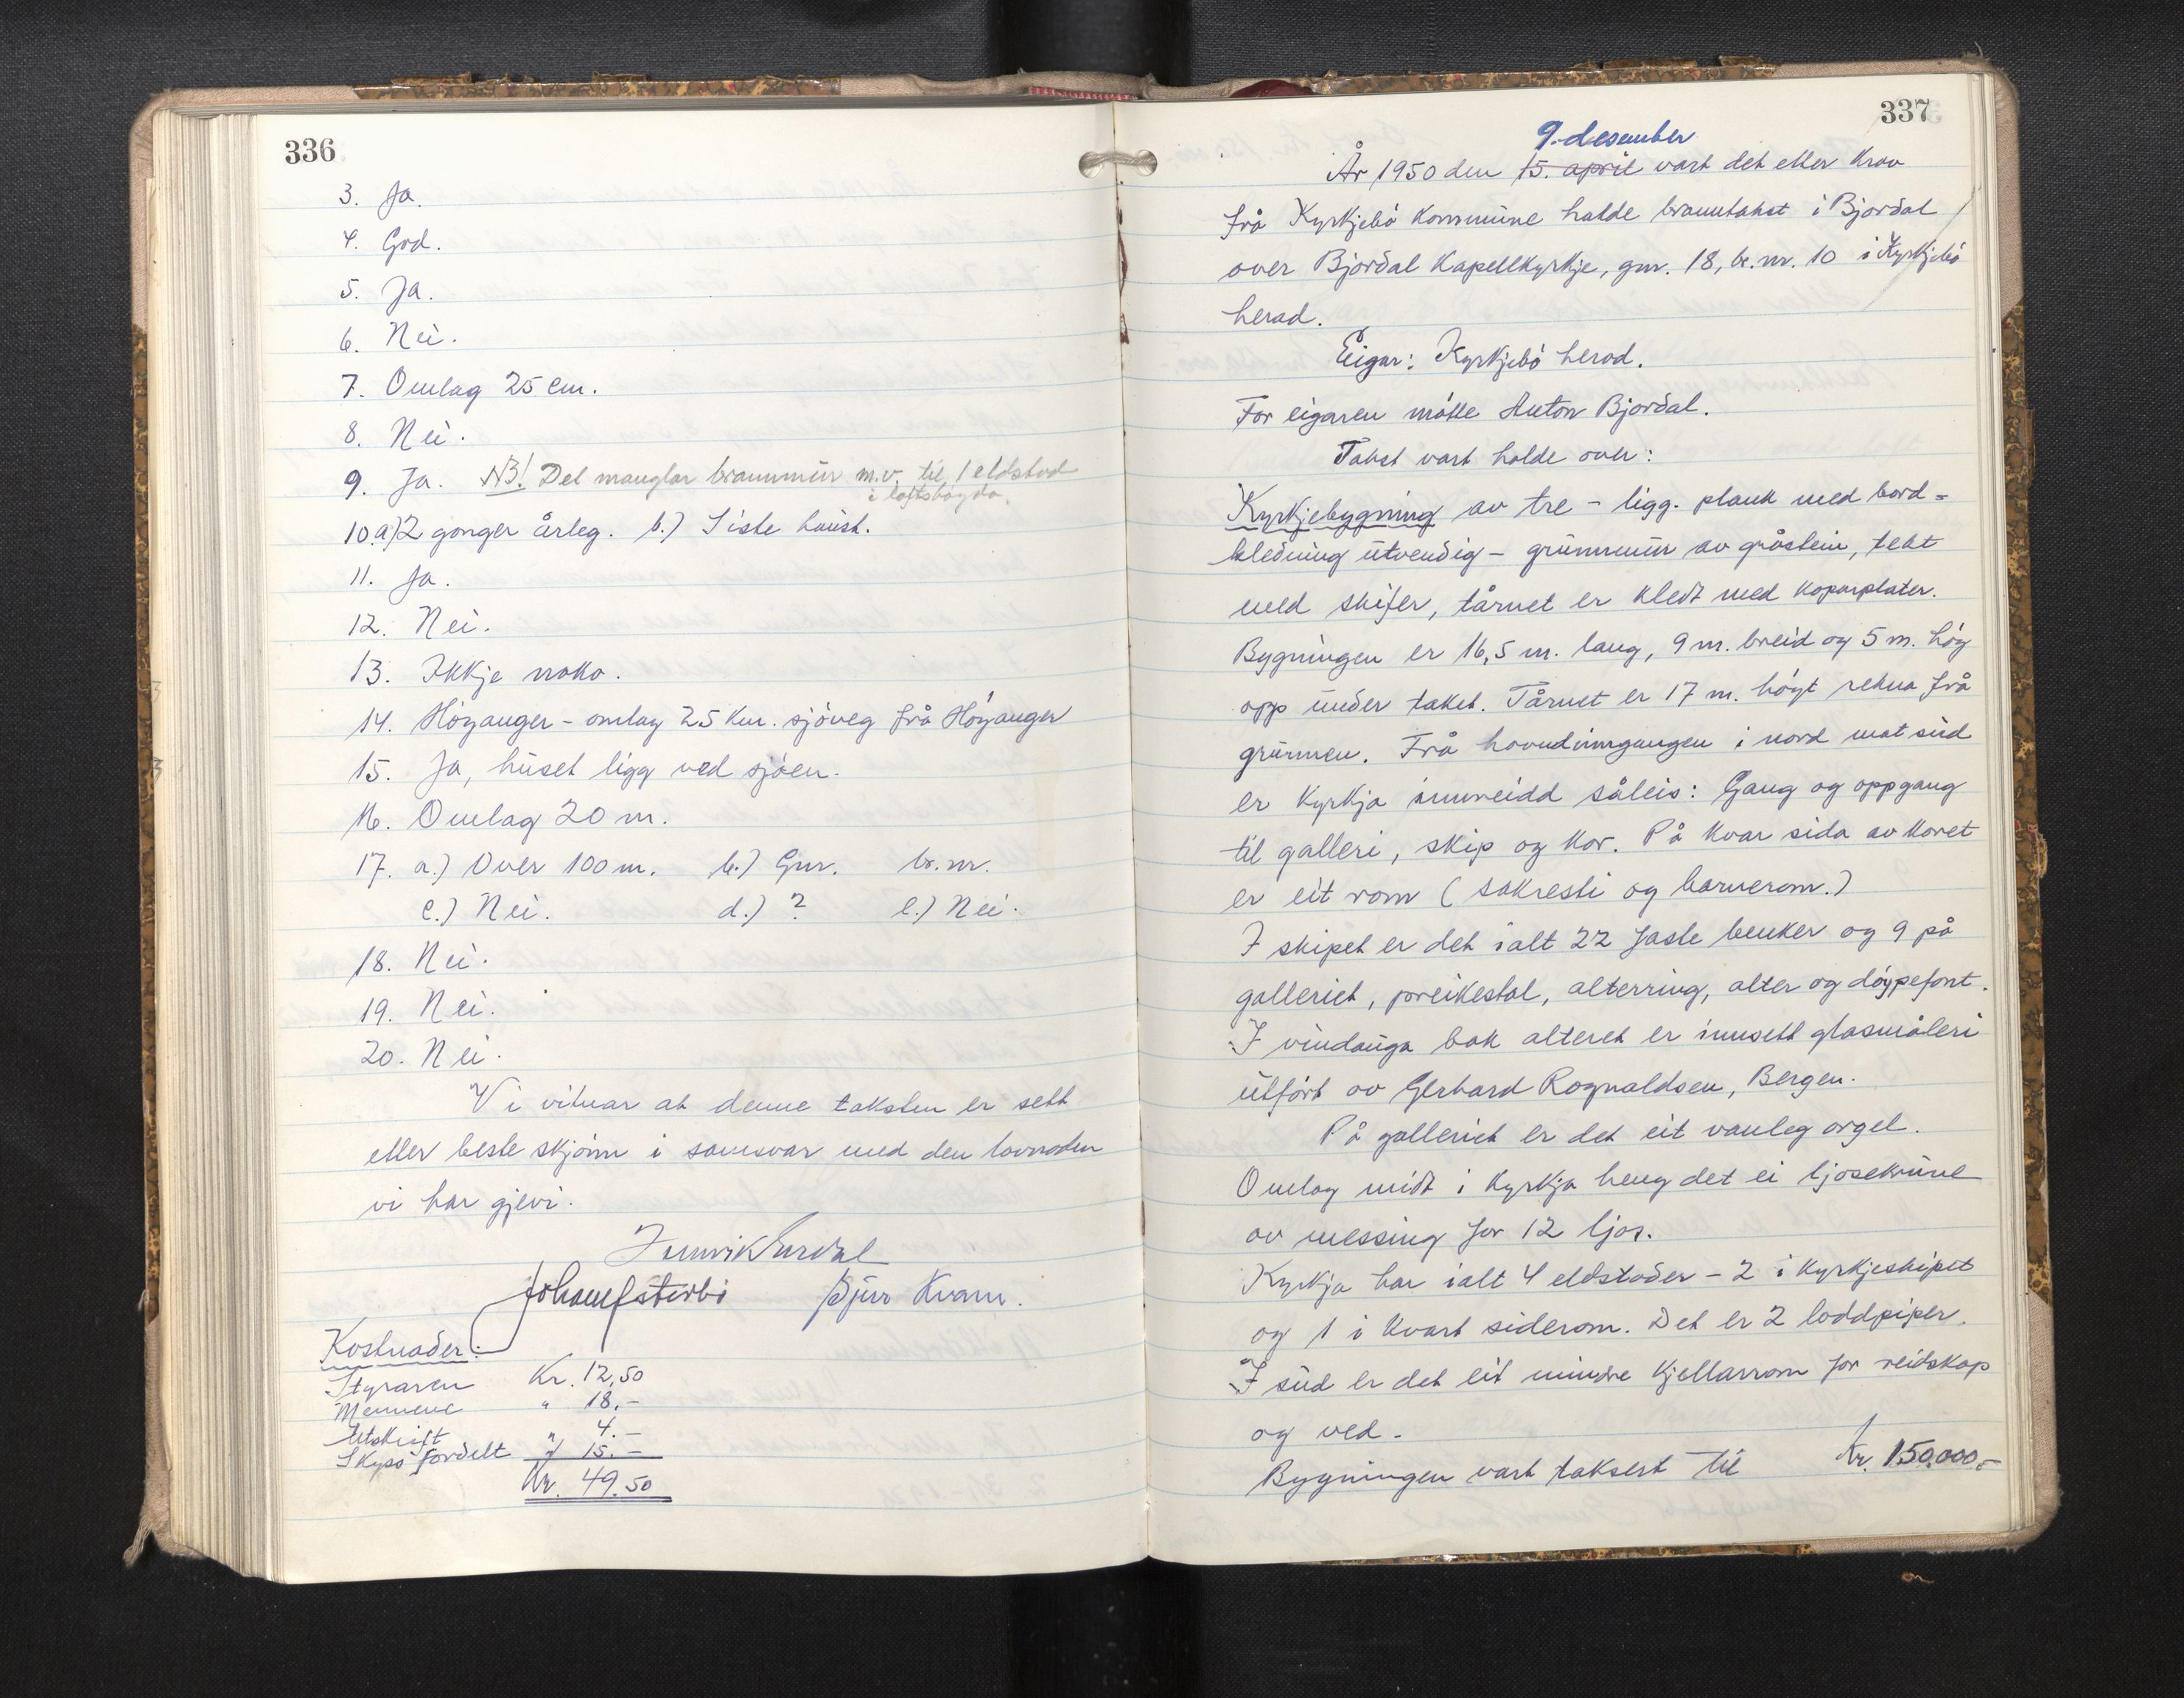 336
3. Ja.
4. God.
5. Ja.
6. Nei.
7. Omlag 25 cm.
8. Nei.
9. Ja. NB! Det manglar brannmur m.v. til 1 eldstad
i loftshøgda.
10. a) 2 gonger årleg. b.) Siste haust.
11. Ja.
12. Nei.
13. Ikkje noko.
14. Höyanger - omlag 25 km. sjöveg frå Höyanger
15. Ja, huset ligg ved sjöen.
16. Omlag 20 m.
17. a.) Over 100 m. b.) Gnr. br.nr.
c.) Nei. d.) ? e.) Nei.
18. Nei.
19. Nei.
20. Nei.
Vi vitnar at denne taksten er sett
etter beste skjönn i samsvar med den lovnaden
vi har gjevi.
Kvam.
Kostnader:
Styraren Kr. 12,50
Mennene " 18.-
Utskrift " 4.-
Skyss fordelt " 15.-
Kr. 49.50
337
9. desember
År 1950 den 15. april vart det etter krav
frå Kyrkjebö kommune halde branntakst i Bjordal
over Bjordal Kapellkyrkje, gnr. 18, br.nr. 10 i Kyrkjebö
herad.
Eigar: Kyrkjebö herad.
For eigaren mötte Anton Bjordal.
Takst vart halde over:
Kyrkjebygning av tre - ligg. plank med bord=
kledning utvendig - grunnmur av gråstein, tekt
med skifer, tårnet er kledt med koparplater.
Bygningen er 16,5 m. lang, 9 m. breid og 5 m. hög
opp under taket. Tårnet er 17 m. högt rekna frå
grunnen. Frå hovudinngangen i nord mot sud
er kyrkja innreidd såleis: Gang og oppgang
til galleri, skip og kor. På kvar sida av koret
er eit rom (sakresti og barnerom.)
I skipet er det ialt 22 faste benker og 9 på
galleriet, preikestol, alterring, alter og döypefont.
I vindauga bak alteret er innsett glasmåleri
utfört av Gerhard Rognaldsen, Bergen.
På galleriet er det eit vanleg orgel.
Omlag midt i kyrkja heng det ei ljosekrune
av messing for 12 ljos.
Kyrkja har ialt 4 eldstader - 2 i kyrkjeskipet
og 1 i kvart siderom. Det er 2 loddpiper.
I sud er det eit mindre kjellarrom for reidskap
og ved.
Bygningen vart taksert til Kr. 150.000,-